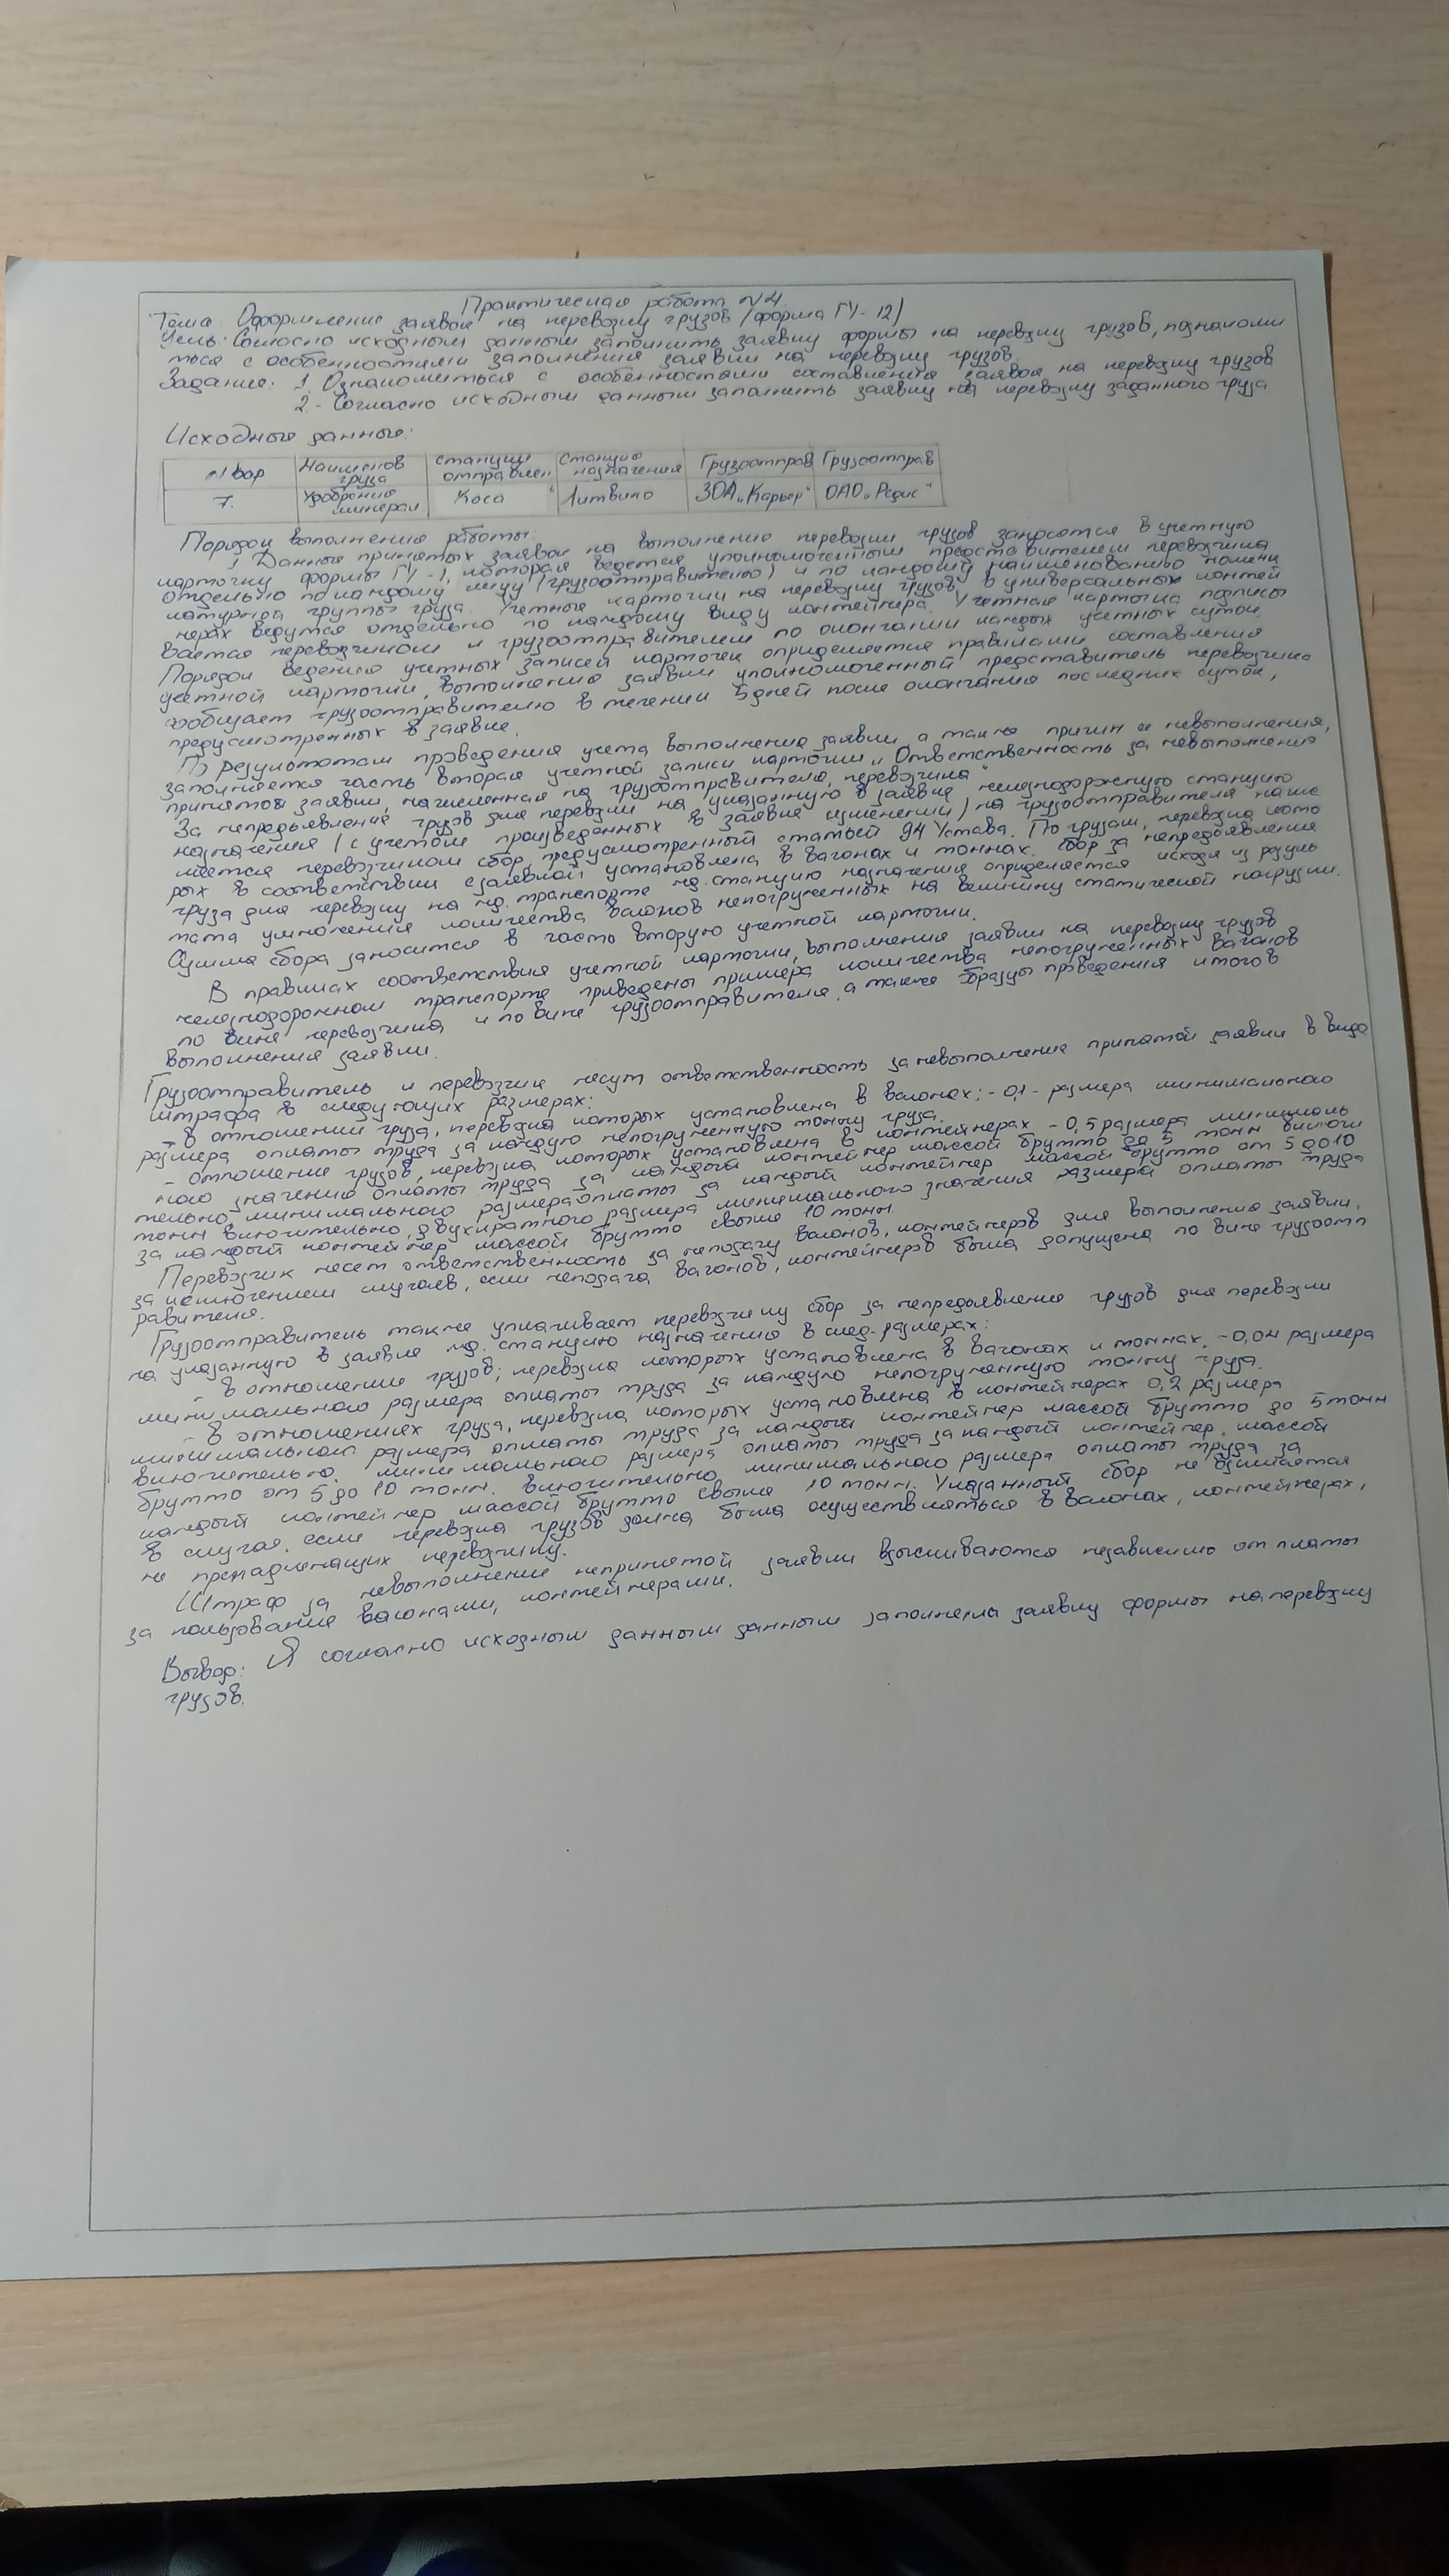 Практическая работа №4
Тема: Оформление заявок на перевозку грузов (форма ГУ-12)
Цель: Согласно исходным данным заполнить заявку формы на перевозку грузов, познакоми
ться с особенностями заполнения заявки на перевозку грузов.
Задание: 1. Ознакомиться с особенностями составления заявок на перевозку грузов
2 - Согласно исходным данным заполнить заявку на перевозку заданного груза.
Исходные данные:
№ вар Наименов груза станция отправлен. Станция назначения Грузоотправ Грузоотправ
7. Удобрение минерал Коса Литвино ЗОА „Карьер" ОАО „Редис"
Порядок выполнения работы:
1 Данные принятых заявок на выполнение перевозки грузов заносятся в учетную
карточку формы ГУ-1, которая ведется уполномоченным представителем перевозчика
отдельно по каждому лицу (грузоотправителю) и по каждому наименованию номенк
латурной группы груза. Учетные карточки на перевозку грузов в универсальных контей
нерах ведутся отдельно по каждому виду контейнера. Учетная карточка подписы
вается перевозчиком и грузоотправителем по окончании каждых учетных суток.
Порядок ведения учетных записей карточек определяется правилами составления
учетной карточки, выполнения заявки уполномоченный представитель перевозчика
сообщает грузоотправителю в течении 5 дней после окончания последних суток,
предусмотренных в заявке.
По результатам проведения учета выполнения заявки а также причин и невыполнения,
заполняется часть вторая учетной записи карточки „Ответственность за невыполнения
принятой заявки, начисленная на грузоотправителя, перевозчика"
За непредъявление грузов для перевозки на указанную в заявке железнодорожную станцию
назначения (с учетом произведенных в заявке изменений) на грузоотправителя начис
ляется перевозчиком сбор, предусмотренный статьей 94 Устава. По грузам, перевозка кото
рых в соответствии с заявкой установлена в вагонах и тоннах. сбор за непредъявление
груза для перевозку на жд. транспорте жд. станцию назначения определяется исходя из резуль
тата умножения количества вагонов непогруженных на величину статической нагрузки.
Сумма сбора заносится в часть вторую учетной карточки.
В правилах соответствия учетной карточки, выполнения заявки на перевозку грузов
железнодорожном транспорте приведены примера количества непогруженных вагонов
по вине перевозчика и по вине грузоотправителя, а также образцы проведения итогов
выполнения заявки.
Грузоотправитель и перевозчик несут ответственность за невыполнение принятой заявки в виде
штрафа в следующих размерах:
- в отношении груза, перевозка которых установлена в вагонах; - 0,1 - размера минимального
размера оплаты труда за каждую непогруженную тонну груза.
- отношение грузов, перевозка которых установлена в контейнерах - 0,5 размера минималь
ного значению оплаты труда за каждый контейнер массой брутто до 5 тонн включи
тельно минимального размера оплаты за каждый контейнер массой брутто от 5 до 10
тонн включительно, двухкратного размера минимального значения размера оплаты труда
за каждый контейнер массой брутто свыше 10 тонн.
Перевозчик несет ответственность за неподачу вагонов, контейнеров для выполнения заявки,
за исключением случаев, если неподача вагонов, контейнеров была допущена по вине грузоотп
равителя.
Грузоотправитель также уплачивает перевозчику сбор за непредъявление грузов для перевозки
на указанную в заявке жд. станцию назначения в след. размерах:
- в отношение грузов; перевозка которых установлена в вагонах и тоннах. - 0,04 размера
минимального размера оплаты труда за каждую непогруженную тонну груза.
- в отношениях груза, перевозка которых установлена в контейнерах 0,2 размера
минимального размера оплаты труда за каждый контейнер массой брутто до 5 тонн
включительно. минимального размера оплаты труда за каждый контейнер, массой
брутто от 5 до 10 тонн. включительно минимального размера оплаты труда за
каждый контейнер массой брутто свыше 10 тонн. Указанный сбор не взимается
в случая, если перевозка грузов должна была осуществляться в вагонах, контейнерах,
не принадлежащих перевозчику.
Штраф за невыполнение непринятой заявки взыскиваются независимо от платы
за пользование вагонами, контейнерами.
Вывод: Я согласно исходным данным данным заполнила заявку формы на перевозку
грузов.